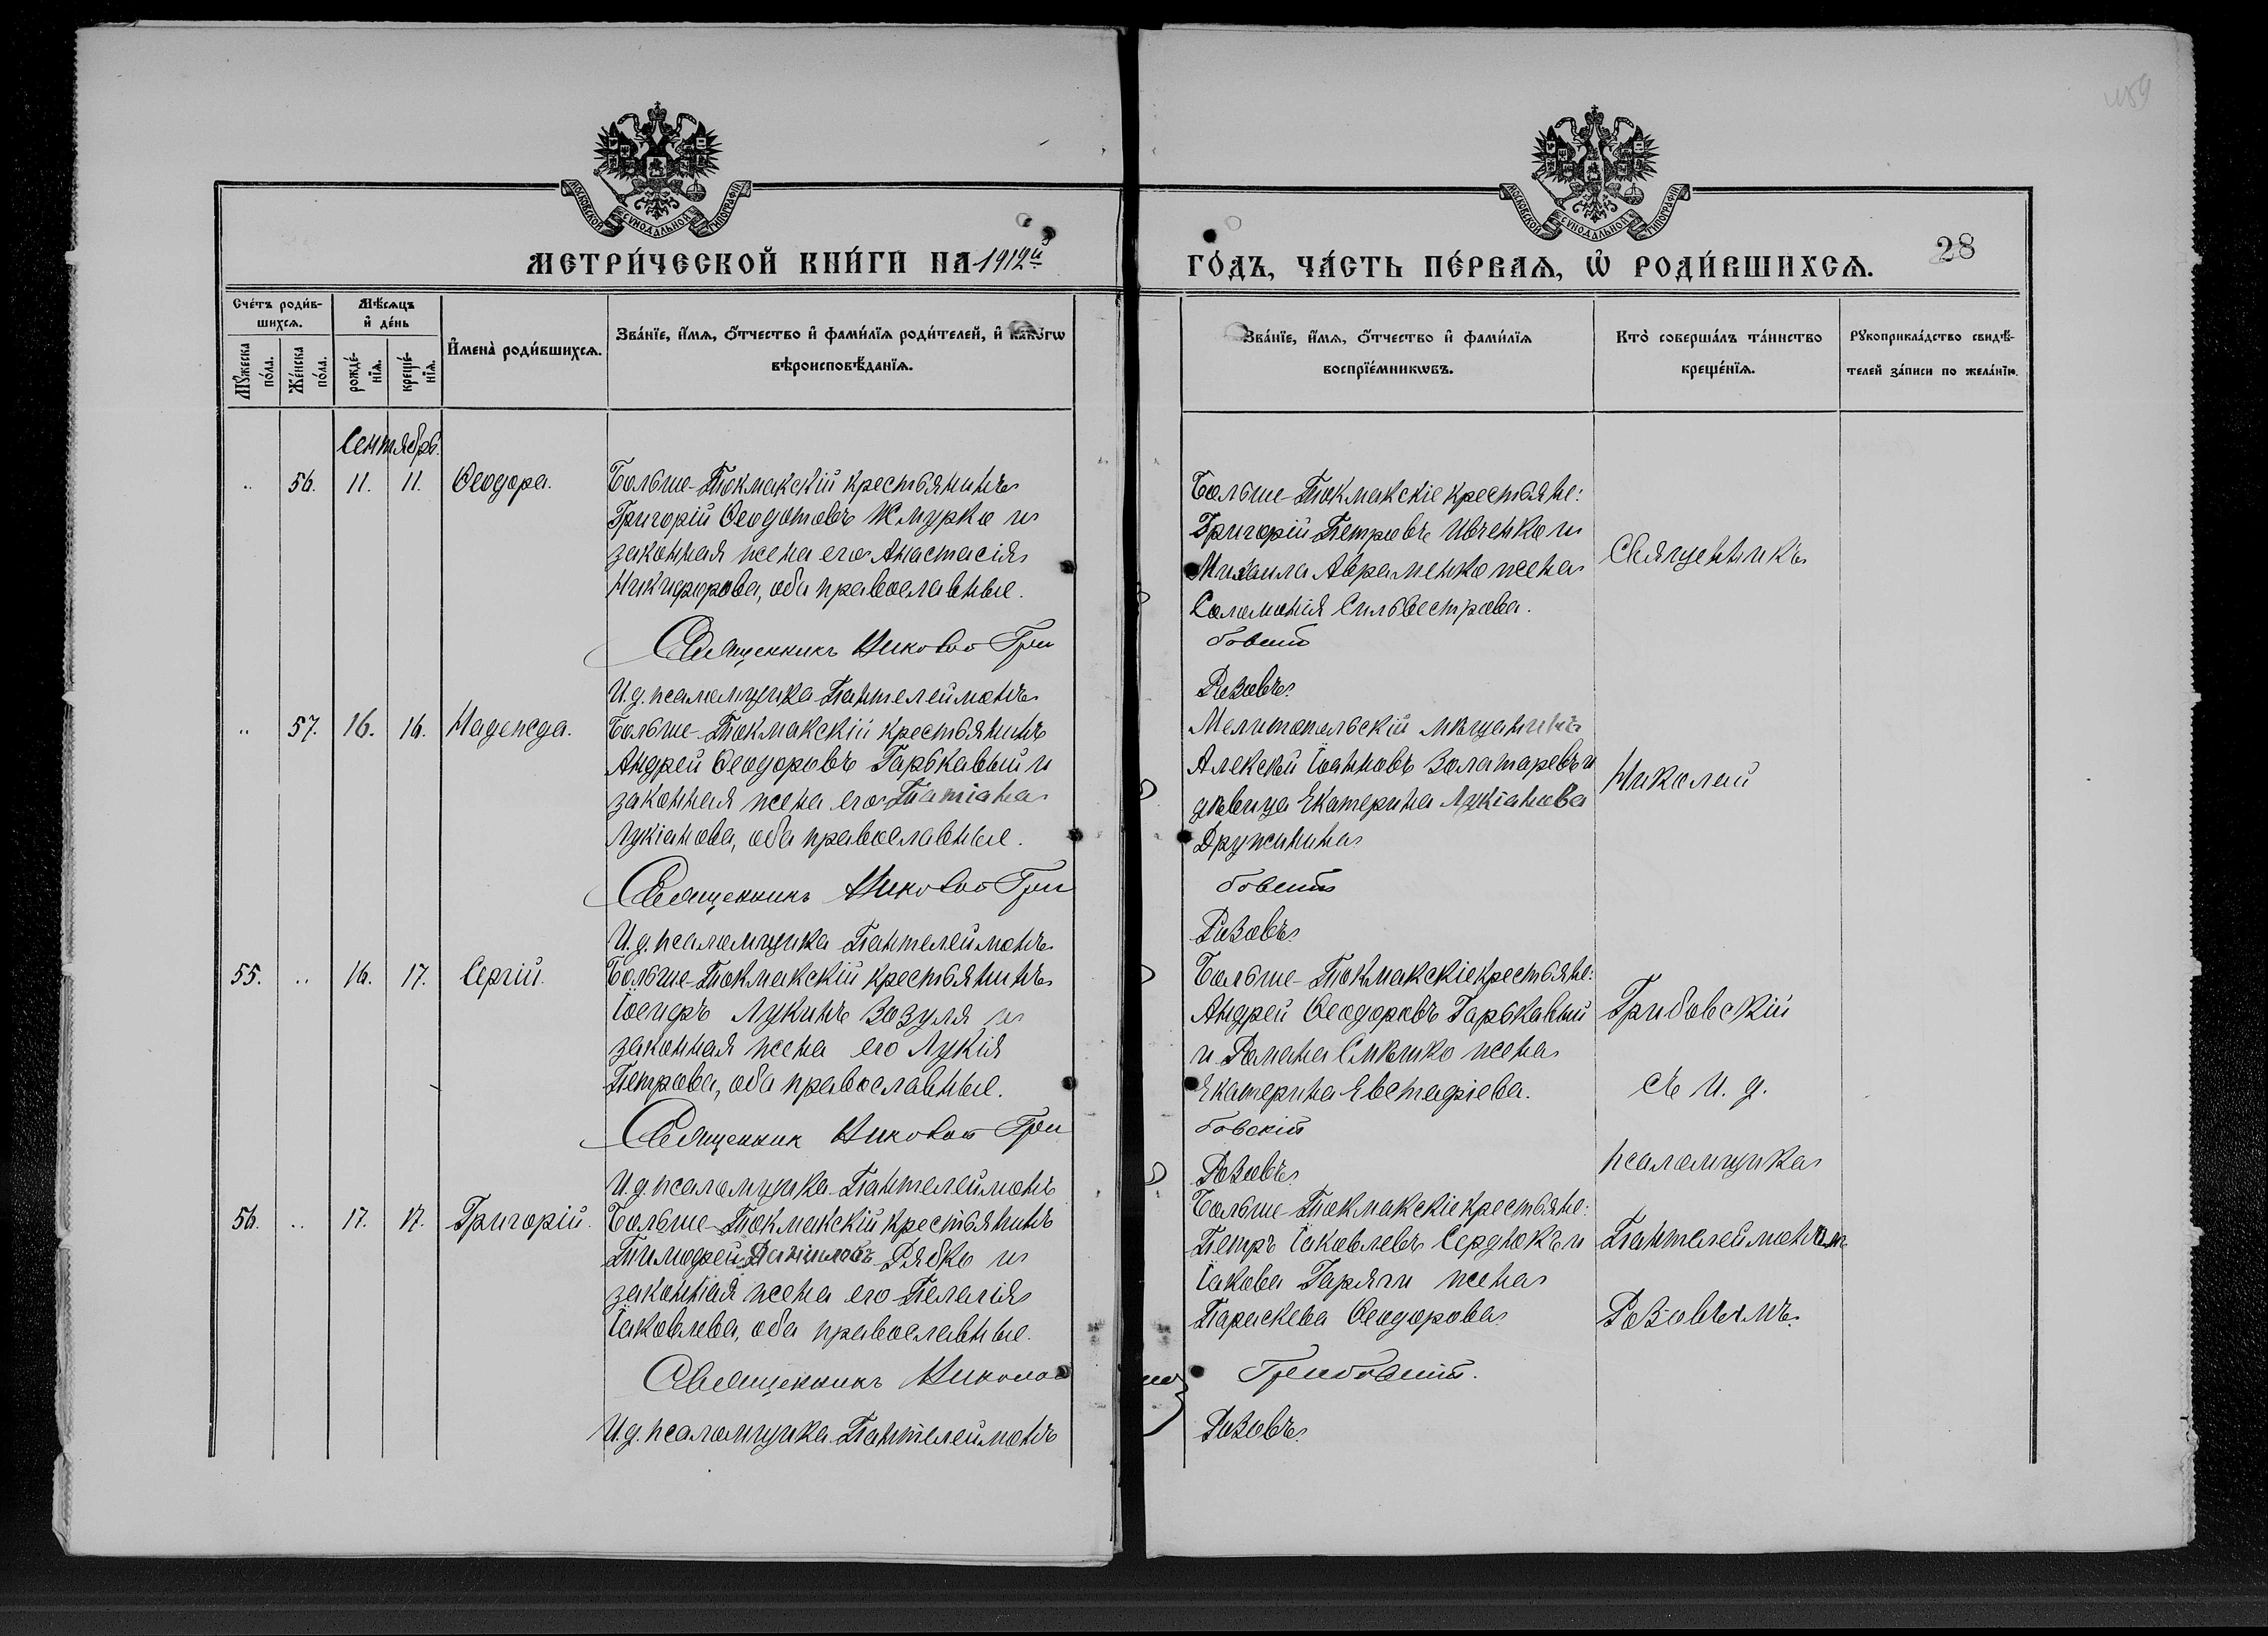 159
МОСКОВСКОЙ СѴНОДАЛЬНОЙ ТИПОГРАФІИ
МОСКОВСКОЙ СѴНОДАЛЬНОЙ ТИПОГРАФІИ
МЕТРИ́ЧЕСКОЙ КНИ́ГИ НА 1912й
ГО́ДЪ, ЧА́СТЬ ПЕ́РВАѦ, Ѡ҆ РОДИ́ВШИХСѦ.
28
Сче́тъ роди́в-
шихсѧ.
Мѣ́сѧцъ
и҆ де́нь
Мꙋ́жеска по́ла.
Же́нска по́ла.
рожде́-
нїѧ.
креще́-
нїѧ.
И҆мена̀ роди́вшихсѧ.
Зва́нїе, и҆́мѧ, ѻ҆́тчество и҆ фами́лїѧ роди́телей, и҆ како́гѡ
вѣроисповѣ́данїѧ.
Зва́нїе, и҆́мѧ, ѻ҆́тчество и҆ фами́лїѧ
воспрїе́мникѡвъ.
Кто̀ соверша́лъ та́инство
креще́нїѧ.
Рꙋкоприкла́дство свидѣ́-
телей за́писи по жела́нїю.
Сентябрь.
" 56. 11. 11. Ѳеодора.
Больше-Токмакскій крестьянинъ
Григорій Ѳеодотовъ Жмурко и
законная жена его Анастасія
Никифорова, оба православные.
Священникъ Николай Гри
И.д. псаломщика Пантелеймонъ
Больше-Токмакскіе крестьяне:
Григорій Петровъ Ивченко и
Михаила Авраменко жена
Соломонія Сильвестрова.
бовскій
Розовъ.
Священникъ
" 57. 16. 16. Надежда.
Больше-Токмакскій крестьянинъ
Андрей Ѳеодоровъ Гарькавый и
законная жена его Татіана
Лукіанова, оба православные.
Священникъ Николай Гри
И.д. псаломщика Пантелеймонъ
Мелитопольскій мѣщанинъ
Алексѣй Іоанновъ Золотаревъ и
дѣвица Екатерина Лукіанова
Дружинина
бовскій
Розовъ.
Николай
55. " 16. 17. Сергій.
Больше-Токмакскій крестьянинъ
Іосифъ Лукинъ Зозуля и
законная жена его Лукія
Петрова, оба православные.
Священник Николай Гри
И.д. псаломщика Пантелеймонъ
Больше-Токмакскіе крестьяне:
Андрей Ѳеодоровъ Гарькавый
и Романа Смѣшко жена
Екатерина Евстафіева.
бовскій
Розовъ.
Грибовскій
съ И. д.
псаломщика
56. " 17. 17. Григорій.
Больше-Токмакскій крестьянинъ
Тимофей Даніиловъ Рябко и
законная жена его Пелагія
Іаковлева, оба православные.
Священникъ Николай
И.д. псаломщика Пантелеймонъ
Больше-Токмакскіе крестьяне:
Петръ Іаковлевъ Сердюкъ и
Іакова Гарячи жена
Параскева Ѳеодорова
Грибовскій.
Розовъ.
Пантелеймоном
Розовымъ.